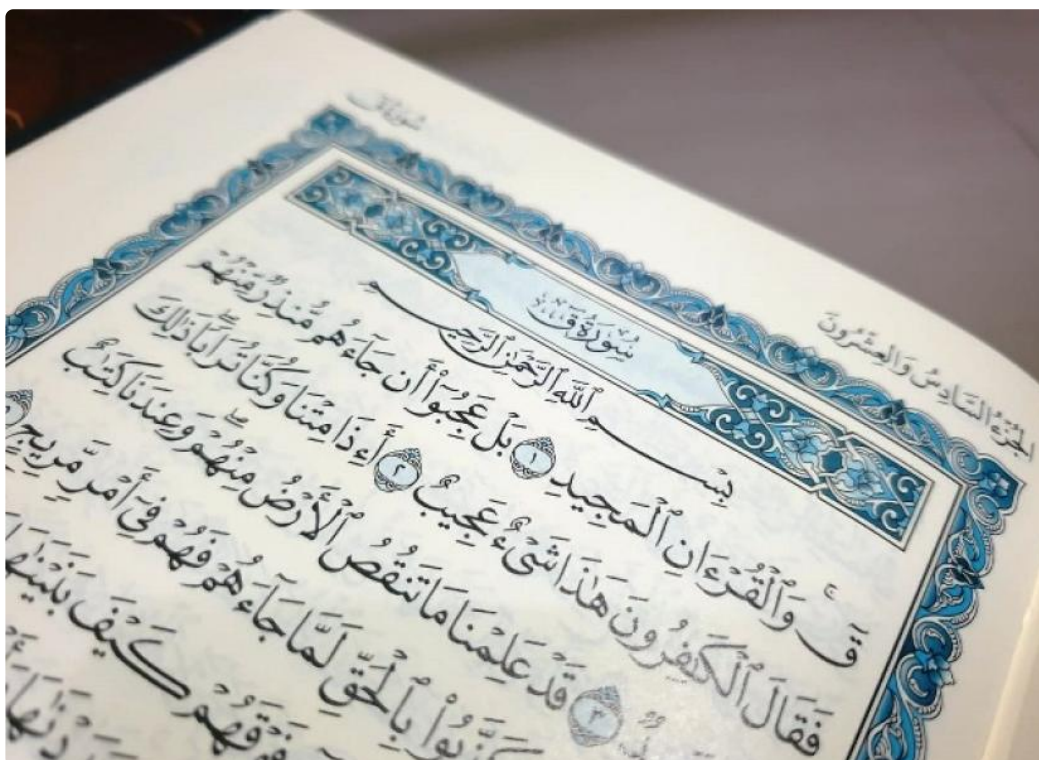 سُورَةُ قٓ
الجُزءُ السَّادِسُ وَالعِشرُونَ
سُورَةُ قٓ
بِسۡمِ ٱللَّهِ ٱلرَّحۡمَٰنِ ٱلرَّحِيمِ
قٓۚ وَٱلۡقُرۡءَانِ ٱلۡمَجِيدِ ١ بَلۡ عَجِبُوٓاْ أَن جَآءَهُم مُّنذِرٞ مِّنۡهُمۡ
فَقَالَ ٱلۡكَٰفِرُونَ هَٰذَا شَيۡءٌ عَجِيبٌ ٢ أَءِذَا مِتۡنَا وَكُنَّا تُرَابٗاۖ ذَٰلِكَ
٣ قَدۡ عَلِمۡنَا مَا تَنقُصُ ٱلۡأَرۡضُ مِنۡهُمۡۖ وَعِندَنَا كِتَٰبٌ
كَذَّبُواْ بِٱلۡحَقِّ لَمَّا جَآءَهُمۡ فَهُمۡ فِيٓ أَمۡرٖ مَّرِيجٍ
فَوۡقَهُمۡ كَيۡفَ بَنَيۡنَٰهَا